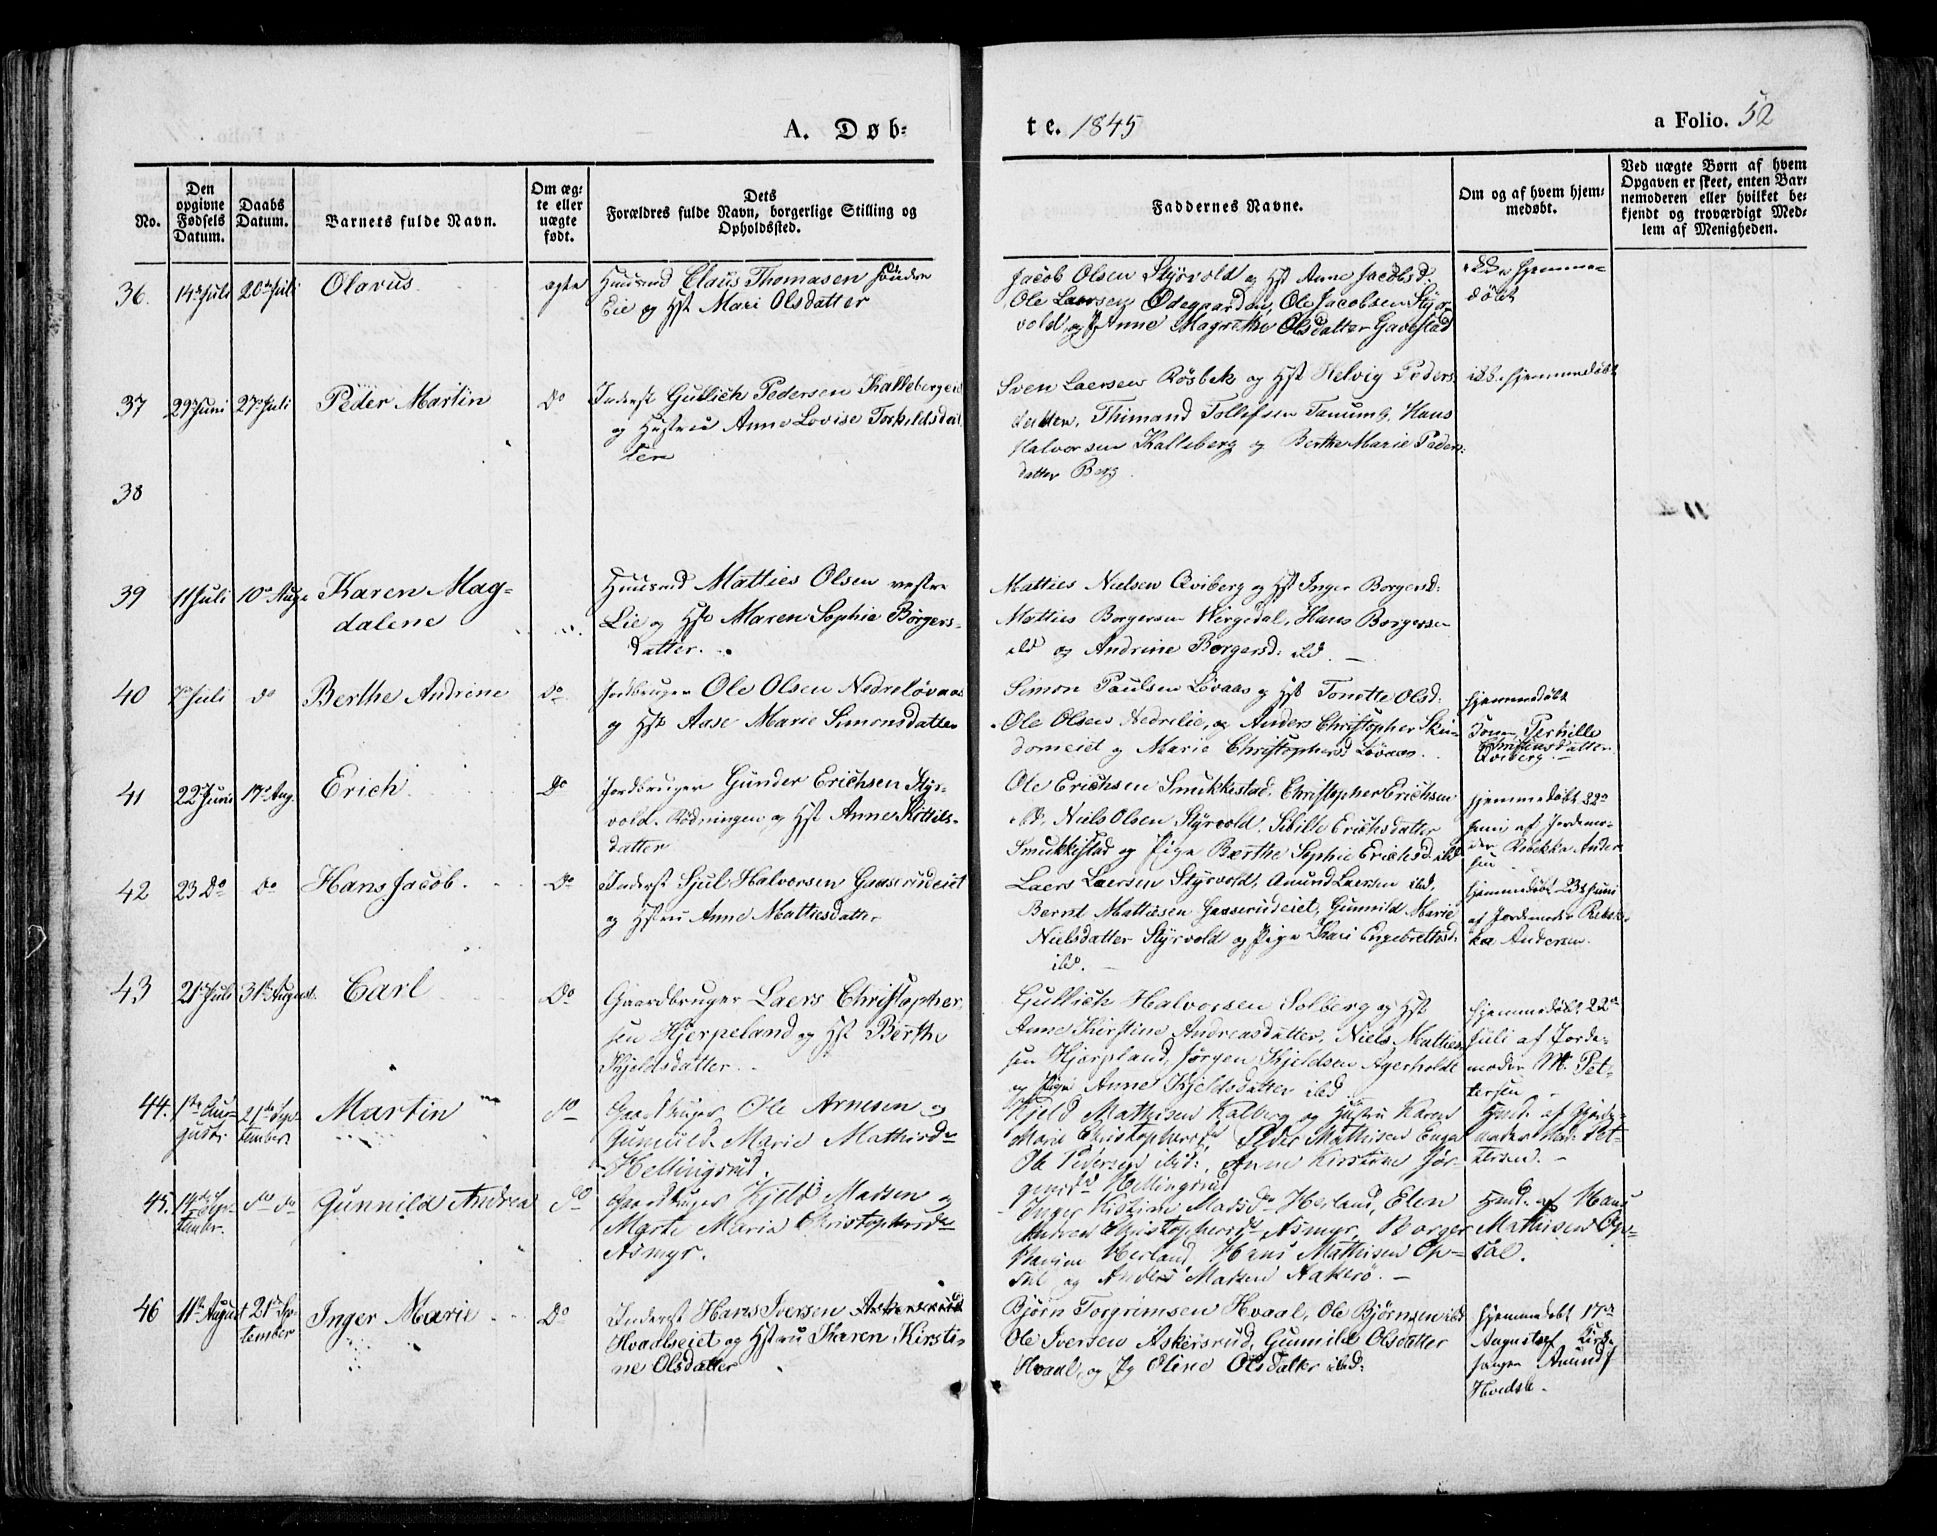 A. Døb-
te. 1845
a Folio. 52
No.
Den opgivne Fødsels Datum.
Daabs Datum.
Barnets fulde Navn.
Om ægte eller uægte født.
Dets
Forældres fulde Navn, borgerlige Stilling og
Opholdssted.
Faddernes Navne.
Om og af hvem hjem-
medøbt.
Ved uægte Børn af hvem
Opgaven er skeet, enten Bar-
nemoderen eller hvilket be-
kjendt og troværdigt Med-
lem af Menigheden.
36. 14de Juli 20de Juli Olavus ægte
Huusmd Claus Thomasen søndre
Eie og Hst Mari Olsdatter
Jacob Olsen Styrvold og Hst Anne Jacobsd.
Ole Laersen Ødegaarden, Ole Jacobsen Styr-
vold og P. Anne Magrethe Olsdatter Gavestad
ikke hjemme-
døbt
37 29 Juni 27de Juli Peder Martin Do
Inderst Gullich Pedersen Kallebergeiet
og Hustru Anne Lovise Torkildsdat
tere
Sven Laersen Røsbek og Hst Helvig Peders-
datter, Thimand Tollefsen Tanum, Hans
Halvorsen Kalleberg og Berthe Marie Peders-
datter Berg.
ikke hjemmedøbt
38
39 11 Juli 10de Aug. Karen Mag-
dalene
Huusmd Matties Olsen vestre
Lie og Hst Maren Sophie Børgers-
datter.
Matties Nielsen Qviberg og Hst Inger Borgersd:
Matties Borgersen Wergedal, Hans Borgersen
ibd og Andrine Borgersd: ibd.
40 Juli do Berthe Andrine do
Jordbruger Ole Olsen Nedreløvaas
og Hst Aase Marie Simonsdatter
Simon Paulsen Løvaas og Hst Tonette Olsd:
Ole Olsen Nedrelie, og Anders Christopher Skin-
domeiet og Marie Christophersd Løvaas.
hjemmedøbt
Pernille
Christensdatter
Qviberg.
41 22 Juni 17de Aug. Erich Do
Jordbruger Gunder Erichsen Styr-
vold Rødningen og Hst Anne Kittils-
datter
Ole Erichsen Smukkestad, Christopher Erichsen
ibd, Niels Olsen Styrvold, Sibille Erichsdatter
Smukkestad og Pige Berthe Sophie Erichsd ibd
hjemmedøbt 22de
Juni af Jordemo-
der Rebekka Ander
sen
42 23 Do Do Hans Jacob. Do
Inderst Sjul Halvorsen Gaaserudeiet
og Hstru Anne Mattiesdatter
Laers Laersen Styrvold, Amund Laersen ibd,
Bernt Mattiesen Gasserudeiet, Gunnild Marie
Nielsdatter Styrvold og Pige Kari Engebrethsd:
ibd.
hjemmedøbt 23de Juni
af Jordemoder Rebek-
ka Andersen.
43 21 Juli 31te August. Carl Do
Gaardbruger Laers Christopher-
sen Hjerpeland og Hst Berthe
Kjeldsdatter.
Gullich Halvorsen Solberg og Hst
Anne Kirstine Andreasdatter, Niels Mathies
sen Hjerpland, Jørgen Kjeldsen Agerholdt
og Pige Anne Kjeldsdatter ibd
hjemmedøbt 22de
Juli af Jorde-
moder M. Pet-
tersen
44. 1ste Au-
gust. 21de Sep-
tember. Martin do
Gaardbruger Ole Arnesen og
Gunnild Marie Mathisdr
Hellingsrud.
Kjeld Mathisen Kalberg og Hustru Karen
Marie Christophersdr Peder Mathisen Enga
Ole Pedersen ibid:, Anne Kirstine Jør-
gensdr Hellingsrud
Hmd. af Gjorde-
moder Mad. Pet-
tersen.
45. 14de Sep-
tember. do do Gunnild Andrea do
Gaardbruger Kjeld Madsen og
Marte Maria Christophersdr
Asmyr.
Inger Kistine Madsdr Herland, Elen
Andrea Christophersdr Asmyr, Borger
Herland, Hans Mathisen Op-
sal og Anders Matsen Aakerø.
Hmd. af Hans
Mathisen Op-
sal.
46 11te August 21de Sep-
tember Inger Marie Do
Inderst Hans Iversen Askersrud
Hvaalseiet og Hstru Karen Kirsti-
ne Olsdatter
Bjørn Torgrimsen Hvaal, Ole Bjørnsen ibd
Ole Iversen Askersrud, Gunnild Olsdatter
Hvaal, og Pg Eline Olsdatter ibd:
hjemmedøbt 17de
August af Kirke-
sanger Amund
Hvedsle.